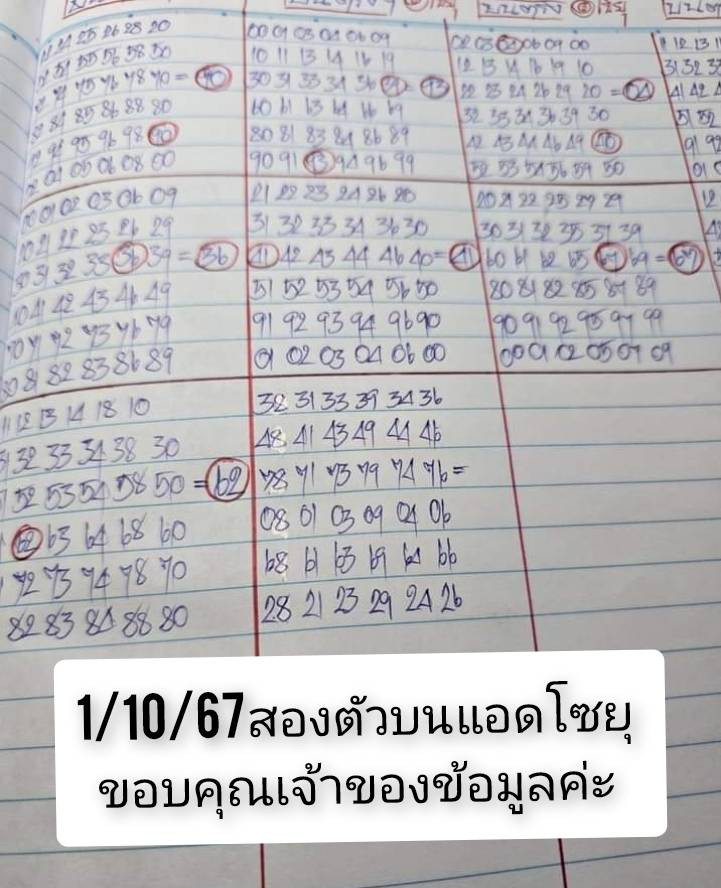 00 01 03 04 06 09
02 03 04 06 09 00
10 11 13 14 16 19
12 13 14 16 19 10
31 32 33
75 76 78 70 = 90
30 31 33 34 36 39 = 93
22 23 24 26 29 20 = 04
41 42 4
84 85 86 88 80
60 61 63 64 66 69
32 33 34 36 39 30
51 52
95 96 98 90
80 81 83 84 86 89
42 43 44 46 49 40
91 92
04 05 06 08 00
90 91 93 94 96 99
52 53 54 56 59 50
00 01 02 03 06 09
21 22 23 24 26 20
20 21 22 25 27 29
12
20 21 22 23 26 29
31 32 33 34 36 30
30 31 32 35 37 39
30 31 32 33 36 39 = 36
41 42 43 44 46 40 = 41
60 61 62 65 67 69 = 67
40 41 42 43 46 49
51 52 53 54 56 50
80 81 82 85 87 89
70 71 72 73 76 79
91 92 93 94 96 90
90 91 92 95 97 99
80 81 82 83 86 89
01 02 03 04 06 00
00 01 02 05 07 09
11 12 13 14 18 10
38 31 33 39 34 36
31 32 33 34 38 30
48 41 43 49 44 46
52 53 54 58 50 = 62
78 71 73 79 74 76 =
62 63 64 68 60
08 01 03 09 04 06
72 73 74 78 70
68 61 63 69 64 66
82 83 84 88 80
28 21 23 29 24 26
1/10/67สองตัวบนแอดโซยุ
ขอบคุณเจ้าของข้อมูลค่ะ